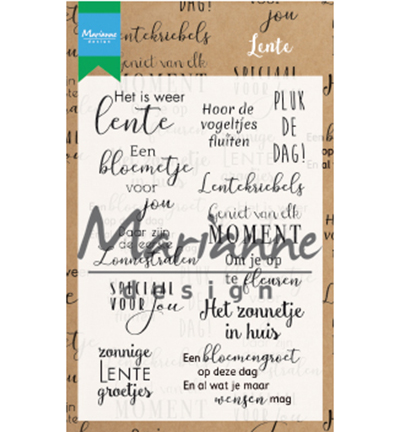 DAG!
jou
Marianne
DESIGN
Lentekriebels
Lente
Geniet van elk
MOMENT
SPECIAAL
Het is weer
lente
Hoor de
vogeltjes
fluiten
PLUK
DE
DAG!
Een
bloemetje
voor
jou
Lentekriebels
Geniet van elk
MOMENT
Daar zijn
de eerste
Zonnestralen
Om je op
te fleuren
Marianne
design
SPECIAAL
VOOR jou
Het zonnetje
in huis
zonnige
LENTE
groetjes
Een bloemengroet
op deze dag
En al wat je maar
wensen mag